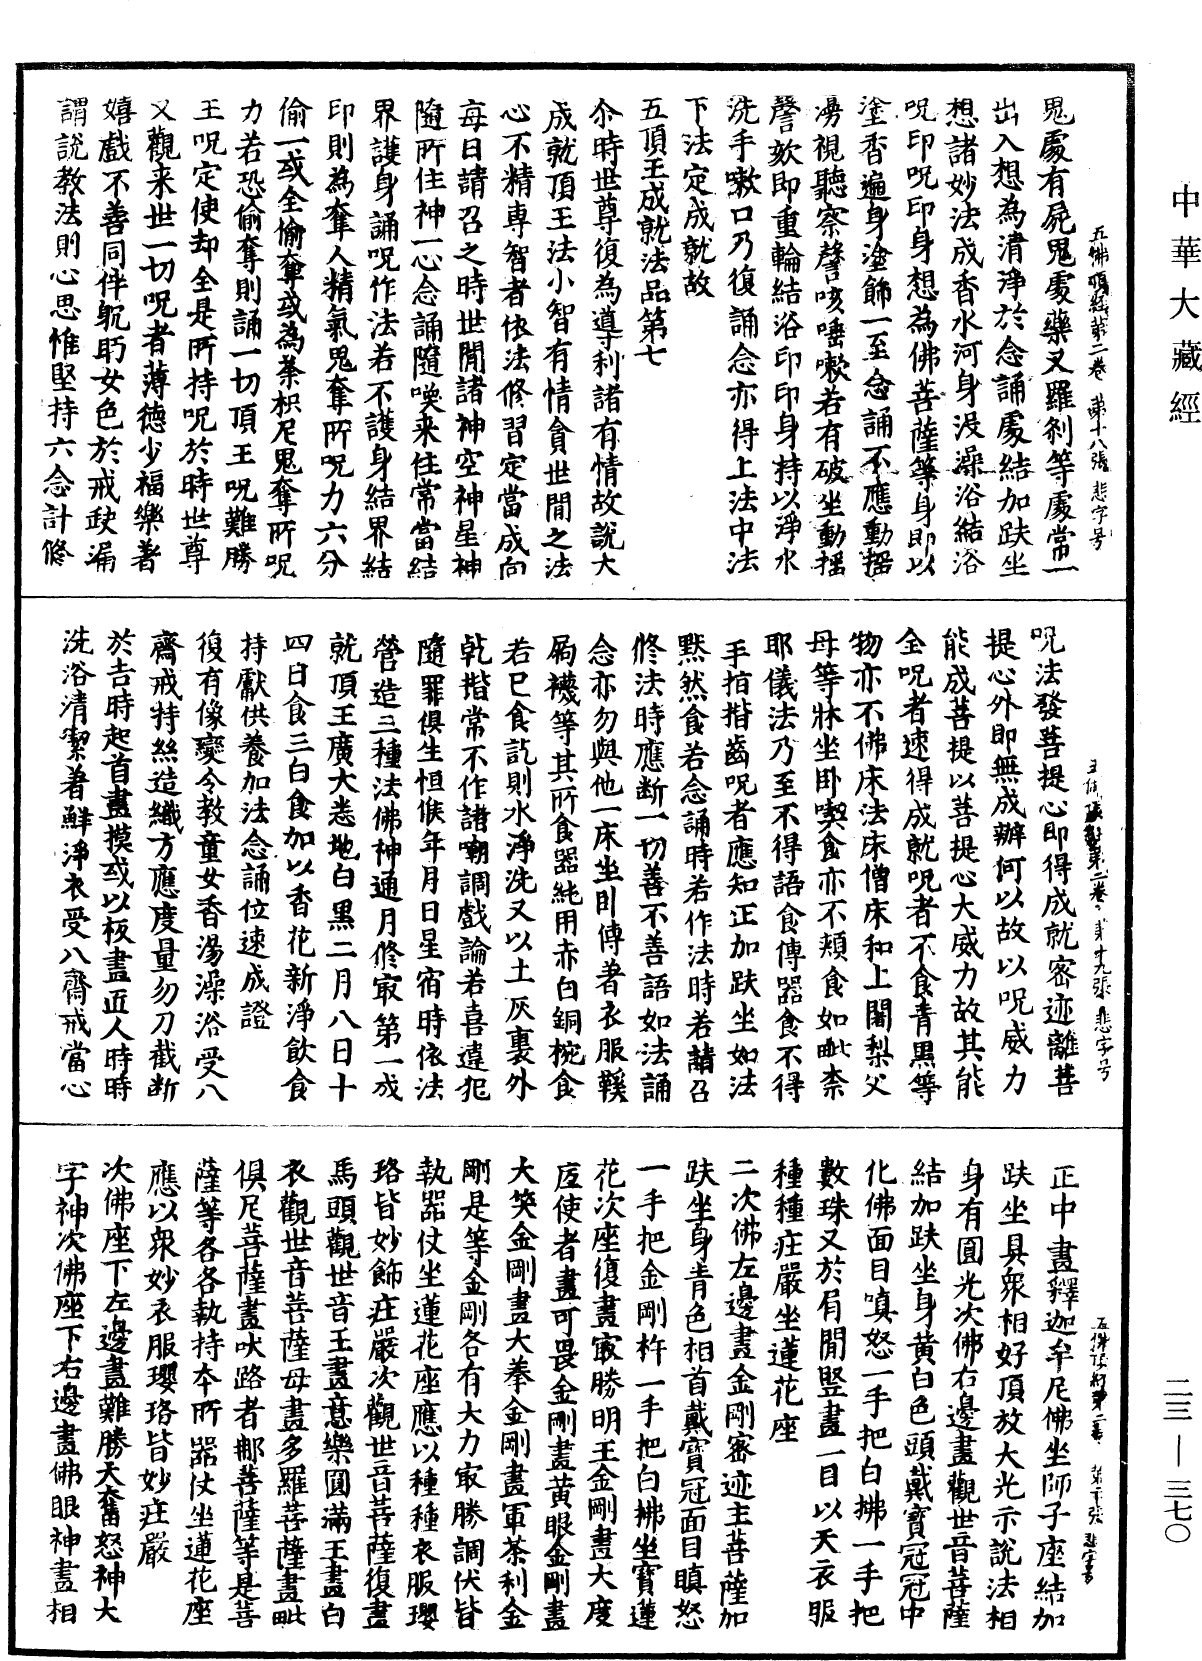 中華大藏經
鬼處有屍鬼處藥叉羅刹等處常一
出入想為清淨於念誦處結加趺坐
想諸妙法成香水河身没澡浴結浴
呪印呪印身想為佛菩薩等身即以
塗香遍身塗飾一至念誦不應動揺
湧視聽察謦咳唾嗽若有破坐動揺
謦欬即重輪結浴印印身持以淨水
洗手嗽口乃復誦念亦得上法中法
下法定成就故
五頂王成就法品第七
尒時世尊復為導利諸有情故說大
成就頂王法小智有情貪世間之法
心不精專智者依法修習定當成向
每日請召之時世間諸神空神星神
隨所住神一心念誦隨喚来住常當結
界護身誦呪作法若不護身結界結
印則為奪人精氣鬼奪所呪力六分
偷一或全偷奪或為荼枳尼鬼奪所呪
力若恐偷奪則誦一切頂王呪難勝
王呪定使却全是所持呪於時世尊
又觀来世一切呪者薄德少福樂著
嬉戲不善同伴躭眄女色於戒缺漏
謂說教法則心思惟堅持六念計修
呪法發菩提心即得成就密迹離菩
提心外即無成辦何以故以呪威力
能成菩提以菩提心大威力故其能
全呪者速得成就呪者不食青黑等
物亦不佛床法床僧床和上闍梨父
母等牀坐卧喫食亦不頬食如毗柰
耶儀法乃至不得語食傳器食不得
手拍揩齒呪者應知正加趺坐如法
默然食若念誦時若作法時若請召
修法時應断一切善不善語如法誦
念亦勿與他一床坐卧傳著衣服鞵
屩襪等其所食器純用赤白銅椀食
若已食訖則水淨洗又以土灰裏外
乾揩常不作諸嘲調戲論若喜違犯
隨罪俱生恒候年月日星宿時依法
營造三種法佛神通月修㝡第一成
就頂王廣大悉地白黒二月八日十
四日食三白食加以香花新淨飲食
持獻供養加法念誦位速成證
復有像變令教童女香湯澡浴受八
齋戒持絲造織方應度量勿刀截断
於吉時起首畫摸或以板畫近人時時
洗浴清潔著鮮淨衣受八齋戒當心
正中畫釋迦牟尼佛坐師子座結加
趺坐具衆相好頂放大光示說法相
身有圓光次佛右邊畫觀世音菩薩
結加趺坐身黄白色頭戴寶冠冠中
化佛面目嗔怒一手把白拂一手把
數珠又於肩間豎畫一目以天衣服
種種莊嚴坐蓮花座
二次佛左邊畫金剛密迹主菩薩加
趺坐身青色相首戴寶冠面目瞋怒
一手把金剛杵一手把白拂坐寶蓮
花次座復畫㝡勝明王金剛畫大度
底使者畫可畏金剛畫黄眼金剛畫
大笑金剛畫大拳金剛畫軍荼利金
剛是等金剛各有大力㝡勝調伏皆
執器仗坐蓮花座應以種種衣服瓔
珞皆妙飾莊嚴次觀世音菩薩復畫
馬頭觀世音王畫意樂圓滿王畫白
衣觀世音菩薩母畫多羅菩薩畫毗
俱尼菩薩畫吠路者那菩薩等是菩
薩等各各執持本所器仗坐蓮花座
應以衆妙衣服瓔珞皆妙莊嚴
次佛座下左邊畫難勝天奮怒神大
字神次佛座下右邊畫佛眼神畫相
二三—三七〇